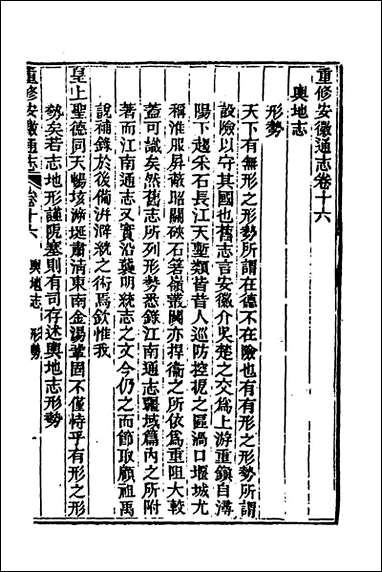 重修安徽通志卷十六
輿地志
形勢
天下有無形之形勢所謂在德不在險也有有形之形勢所謂
設險以守其國也舊志言安徽介吳楚之交爲上游重鎭自潯
陽下趨采石長江天塹類皆昔人巡防控扼之區渦口堰城尤
稱淮服屏蔽昭關硤石箬嶺叢關亦捍衞之所依爲重阻大較
蓋可識矣然舊志所列形勢悉錄江南通志疆域篇內之所附
著而江南通志又實沿襲明統志之文今仍之而節取顧祖禹
說補錄於後備洴澼絖之術焉欽惟我
皇上聖德同天暢垓溯埏肅淸東南金湯鞏固不僅恃乎有形之形
勢矣若志地形謹阨塞則有司存述輿地志形勢
重修安徽通志 卷十六 輿地志 形勢